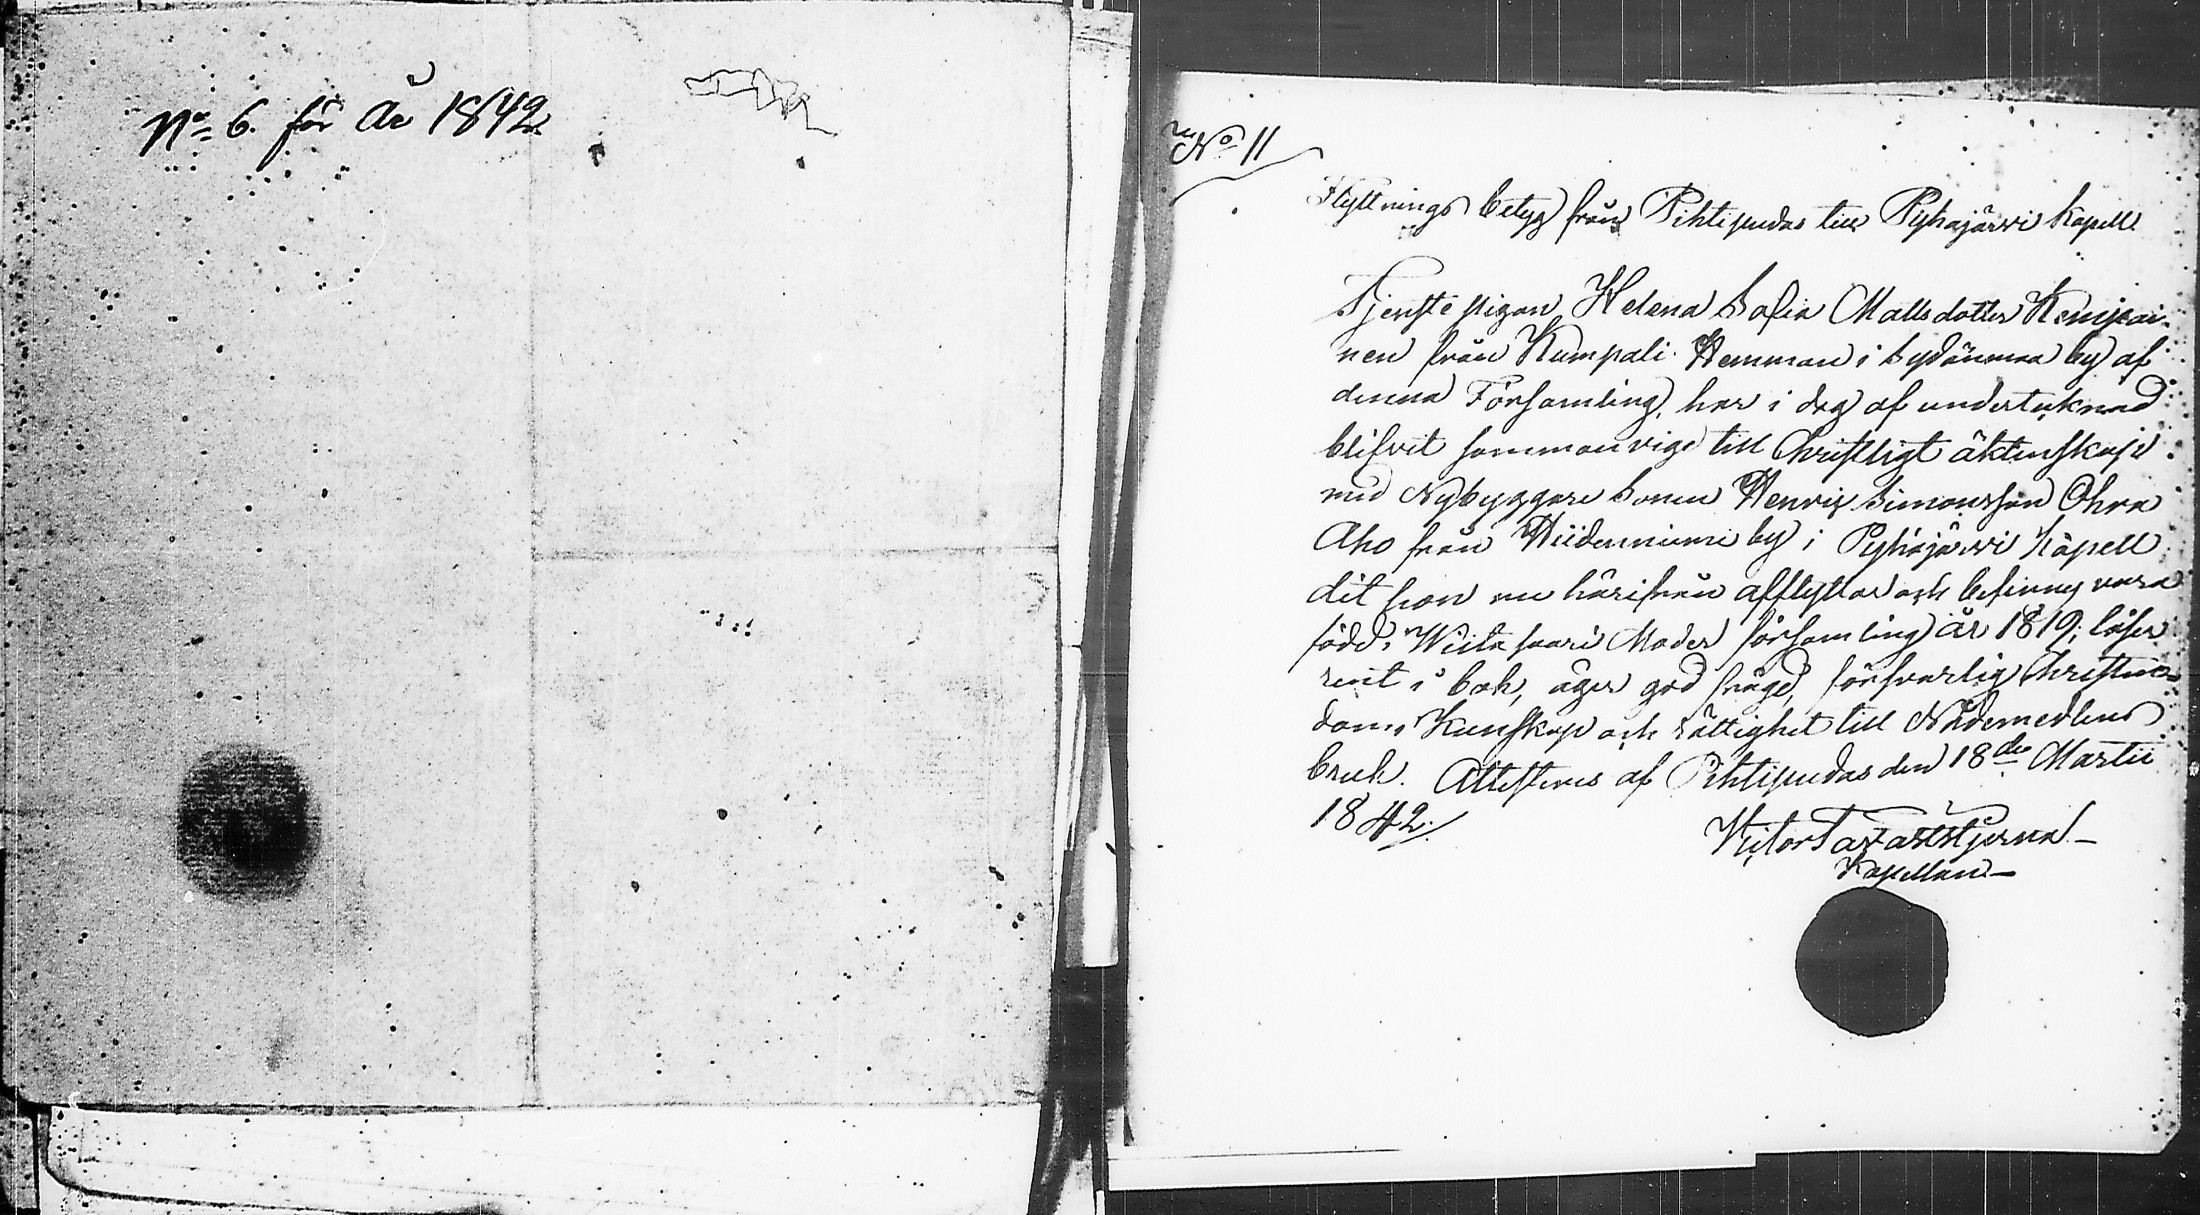 No 6. för År 1842.
No 11
Flyttnings betyg från Pihtipudas till Pyhajärvi Kapell
Tjenste pigan Helena Sofia Mattsdotter Kempai-
nen från Kumpali Hemman i Sydänmaa by af
denna Församling, har i dag af undertecknad
blifvit sammanvigd till Christligt äktenskap
med Nybyggare Sonen Henric Simonsson Ohra
Aho från Hiidenniemi by i Pyhäjärvi Kapell
dit hon nu härifrån afflyttar och befinnes vara
född i Wiitasaari Moder församling år 1819; läser
rent i bok, äger god frägd, försvarlig Christen-
doms Kunskap och rättighet till Nådemedlens
bruk. Attesteras af Pihtipudas den 18de Martii
1842./.
Victor Tavaststjerna
Kapellan